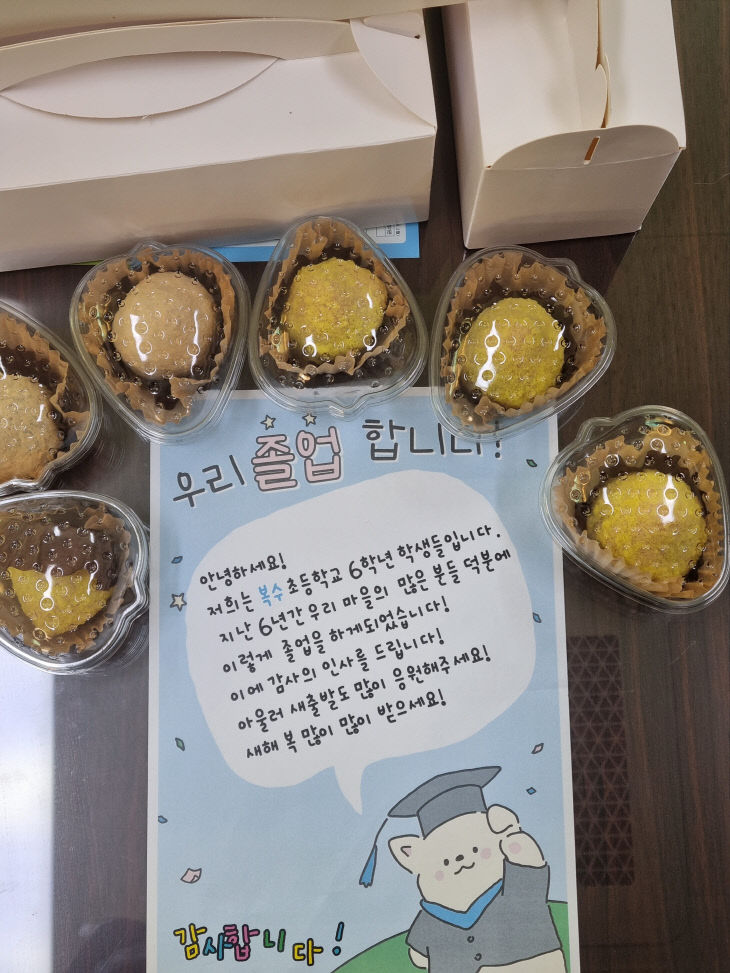 우리 졸업 합니다!
안녕하세요!
저희는 복수초등학교 6학년 학생들입니다.
지난 6년간 우리 마을의 많은 분들 덕분에
이렇게 졸업을 하게되었습니다!
이에 감사의 인사를 드립니다!
아울러 새출발도 많이 응원해주세요!
새해 복 많이 많이 받으세요!
감사합니다!